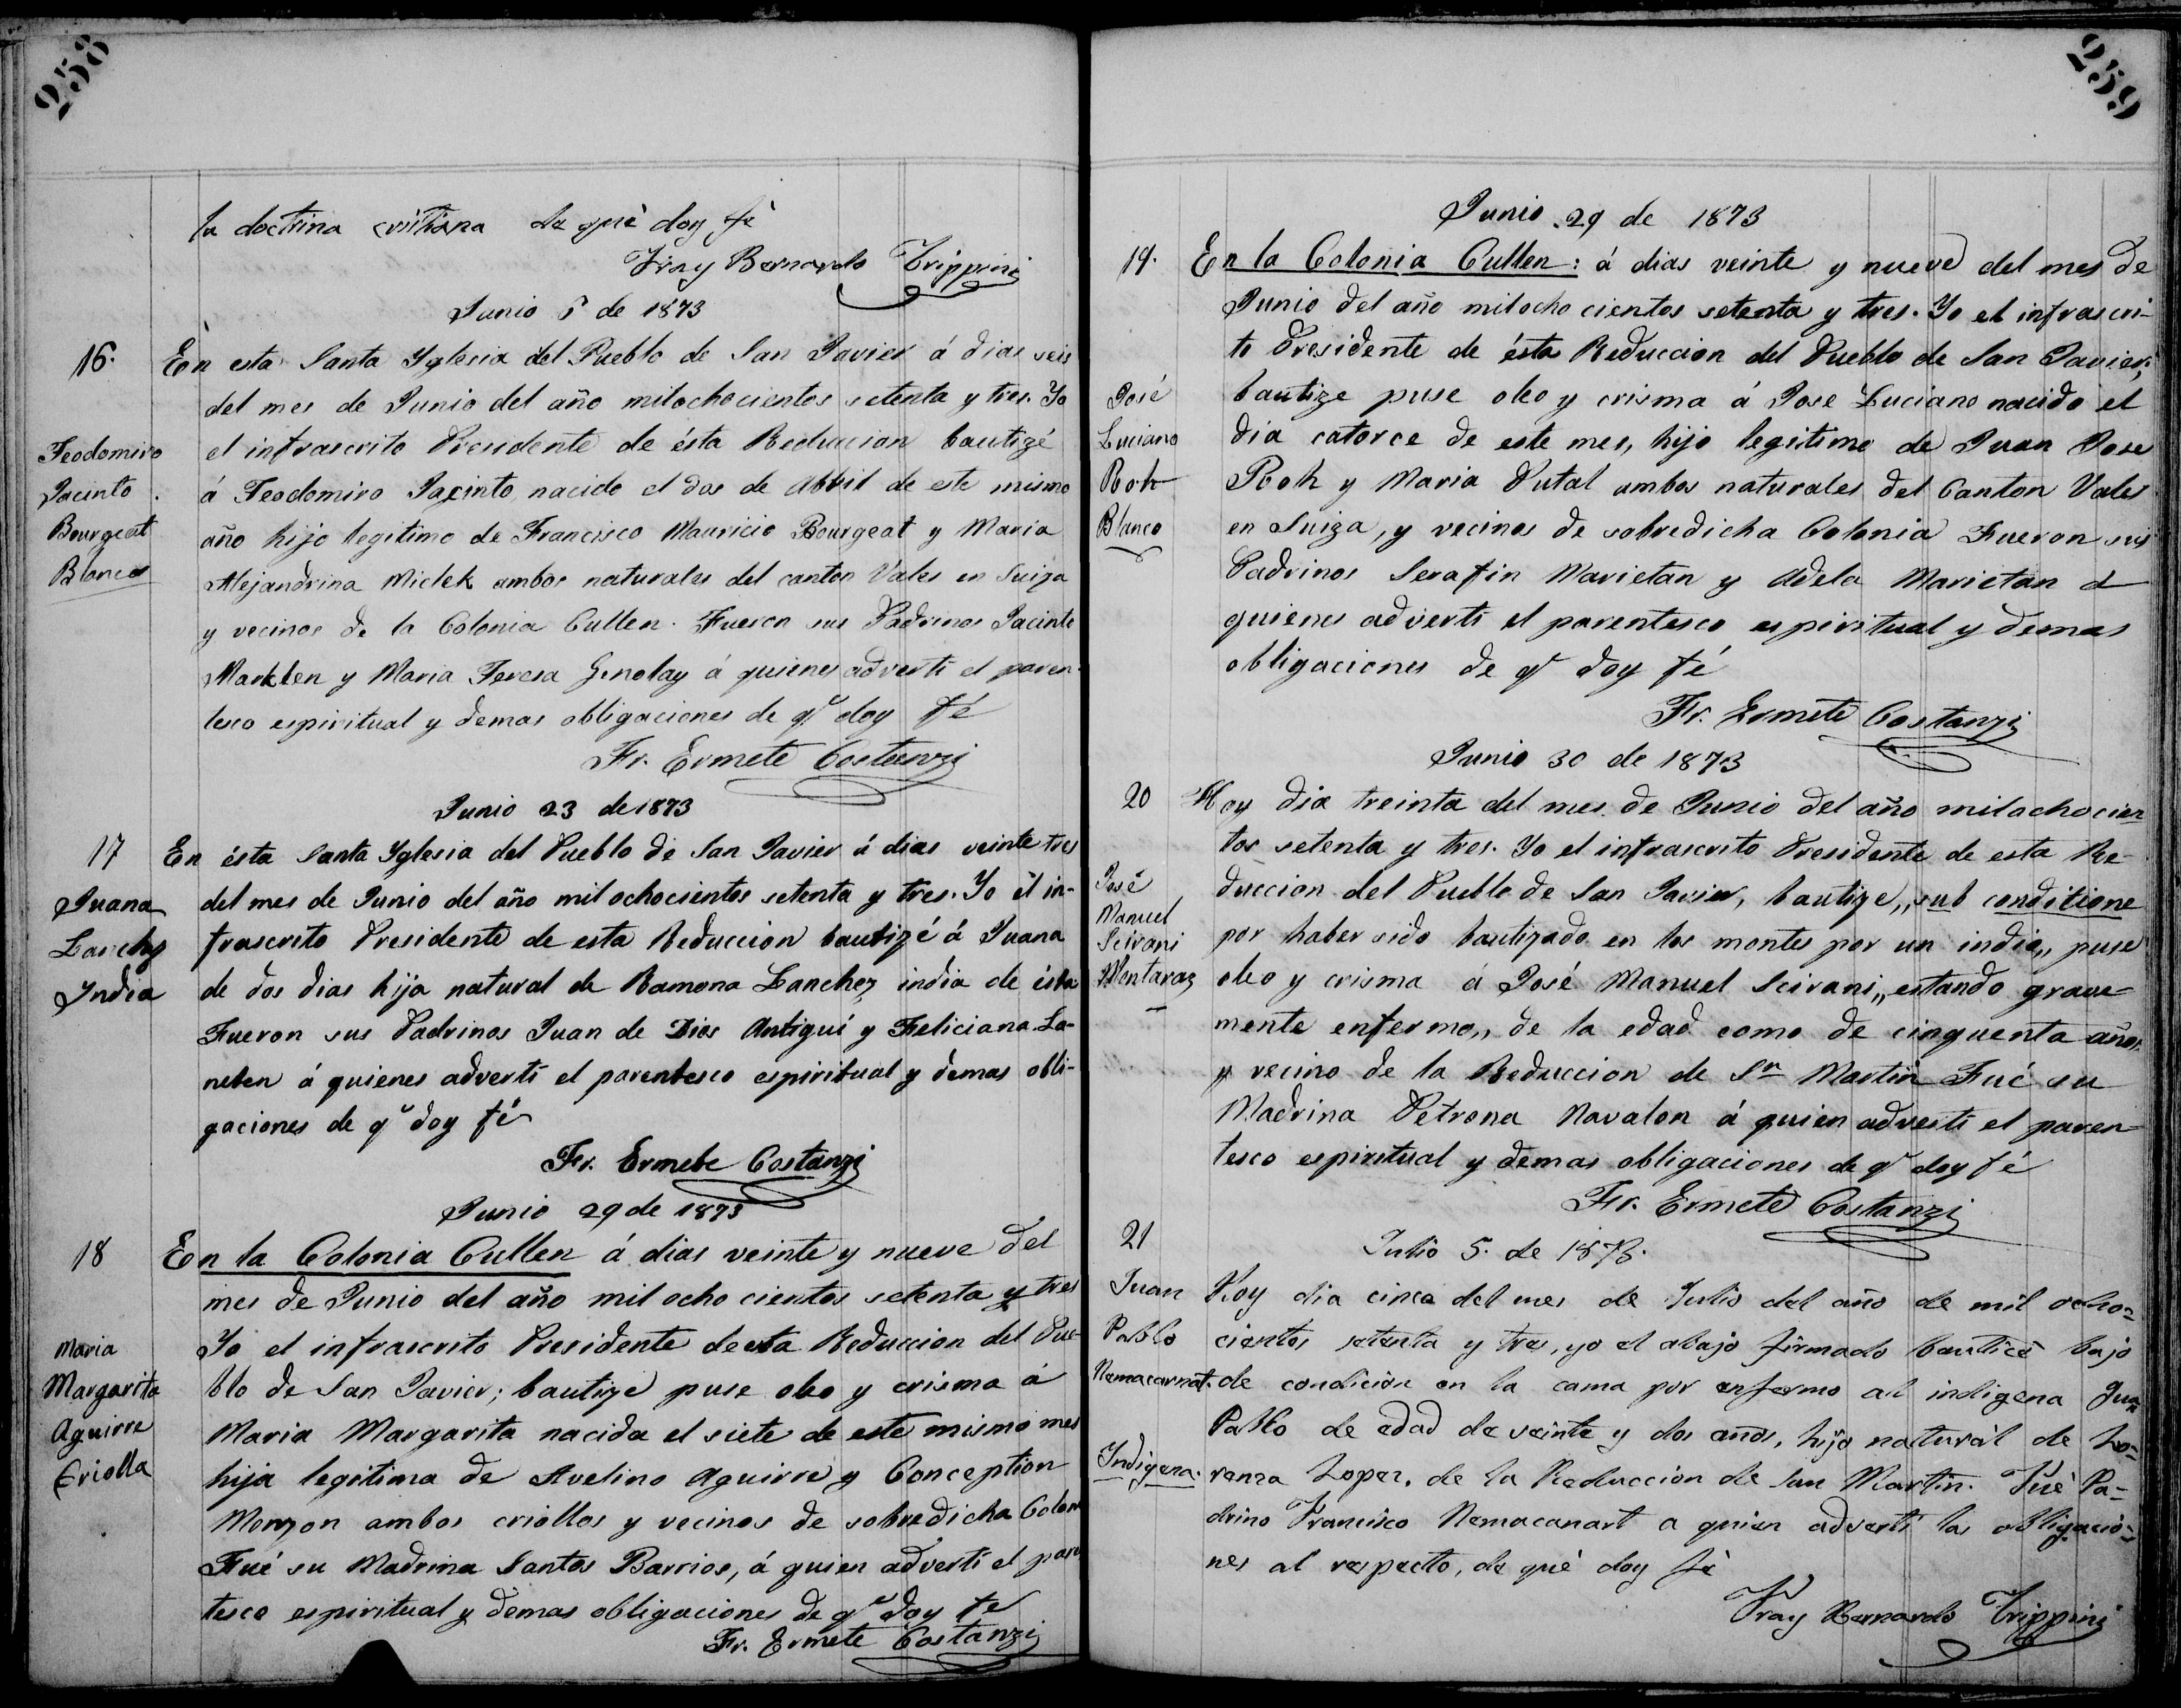 258
la doctrina cristiana de qué doy fè
Fray Bernardo Trippini
Junio 6 de 1873
16. En esta Santa Yglesia del Pueblo de San Javier á dias seis
del mes de Junio del año milochocientos setenta y tres. Yo
Feodomiro
Jacinto
Bourgeat
Blanco
el infrascrito Presidente de ésta Reduccion bautizé
á Feodomiro Jacinto nacido el dos de Abril de este mismo
año hijo legitimo de Francisco Mauricio Bourgeat y Maria
Alejandrina Miclek ambos naturales del canton Vales en Suiza
y vecinos de la Colonia Cullen. Fueron sus Padrinos Jacinto
Markten y Maria Teresa Genolay á quienes advertí el paren-
tesco espiritual y demas obligaciones de qe doy fé
Fr. Ermete Costanzi
Junio 23 de 1873
17 En ésta Santa Yglesia del Pueblo de San Javier á dias veinte tres
Juana
Lanchez
India
del mes de Junio del año mil ochocientos setenta y tres. Yo el in-
frascrito Presidente de esta Reduccion bautizé á Juana
de dos dias hija natural de Ramona Lanchez india de ésta
Fueron sus Padrinos Juan de Dios Antiguí y Feliciana La-
neten á quienes advertí el parentesco espiritual y demas obli-
gaciones de qe doy fé
Fr. Ermete Costanzi
Junio 29 de 1873
18 En la Colonia Cullen á dias veinte y nueve del
mes de Junio del año mil ocho cientos setenta y tres
Maria
Margarita
Aguirre
Criolla
Yo el infrascrito Presidente de esta Reduccion del Pue-
blo de San Javier; bautize puse oleo y crisma á
Maria Margarita nacida el siete de este mismo mes
hija legitima de Avelino Aguirre y Conception
Monzon ambos criollos y vecinos de sobredicha Colon
Fué su Madrina Santos Barrios, á quien advertí el paren
tesco espiritual y demas obligaciones de qe doy fe
Fr. Ermete Costanzi
259
Junio 29 de 1873
19. En la Colonia Cullen: á dias veinte y nueve del mes de
Junio del año milocho cientos setenta y tres. Yo el infrascri-
to Presidente de ésta Reduccion del Pueblo de San Javier;
José
Luciano
Roh
Blanco
bautize puse oleo y crisma á Jose Luciano nacido el
dia catorce de este mes, hijo legitimo de Juan Jose
Roh y Maria Putal ambos naturales del Canton Vales
en Suiza, y vecinos de sobredicha Colonia Fueron sus
Padrinos Serafin Marietan y Adela Marietan á
quienes advertí el parentesco espiritual y demas
obligaciones de qe doy fé
Fr. Ermete Costanzi
Junio 30 de 1873
20 Hoy dia treinta del mes de Junio del año milochocien
tos setenta y tres. Yo el infrascrito Presidente de esta Re-
José
Manuel
Scirani
Montaraz
duccion del Pueblo de San Javier, bautize „sub conditione
por haber sido bautizado en los montes por un indio„ puse
oleo y crisma á José Manuel Scirani„ estando grave-
mente enfermo„ de la edad como de cinquenta años
y vecino de la Reduccion de Sn Martin Fué su
Madrina Petrona Navalon á quien advertí el paren-
tesco espiritual y demas obligaciones de qe doy fé
Fr. Ermete Costanzi
21
Julio 5. de 1873.
Juan
Pablo
Nemacarnat.
Indigena.
Hoy dia cinco del mes de Julio del año de mil ocho=
cientos setenta y tres, yo el abajo firmado bauticé bajo
de condicion en la cama por enfermo al indigena Juan
Pablo de edad de veinte y dos años, hijo naturál de Lo=
renza Lopez, de la Reduccion de San Martin. Fué Pa-
drino Francisco Nemacanart a quien advertí las obligacio=
nes al respecto, de qué doy fè
Fray Bernardo Trippini